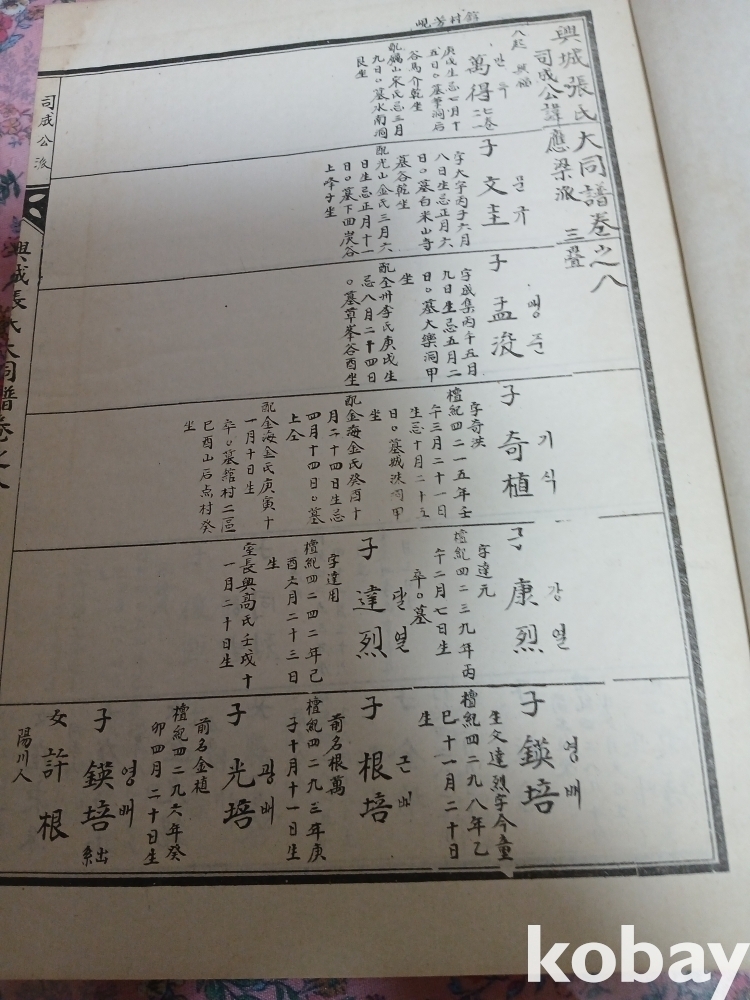 舘村芳峴
興城張氏大同譜卷之八
司成公諱應梁派 三疊
八起 興錫
만두
萬得
庚戌生忌七月十
五日〇墓筆洞后
谷馬介乾坐
配礪山宋氏忌三月
九日〇墓水南洞
艮坐
문규
子 文圭
字大字丙子六月
八日生忌正月六
日〇墓白米山寺
墓谷乾坐
配光山金氏三月六
日生忌正月十一
日〇墓下四炭谷
上峰子坐
맹준
子 孟浚
字成集丙午五月
九日生忌五月二
日〇墓大樂洞甲
坐
配全州李氏庚戌生
忌八月二十四日
〇墓草峯谷酉坐
기식
子 奇植
字奇洪
檀紀四二一五年壬
午三月二十一日
生忌十月二十五
日〇墓
坐
配金海金氏癸酉十
月二十四日生忌
四月十四日〇墓
上仝
配金海金氏庚寅十
一月十日生
卒〇墓舘村二區
巳酉山后点村癸
坐
강열
子 康烈
字達元
檀紀四二三九年丙
午二月七日生
卒〇墓
달열
子 達烈
字達用
檀紀四二四二年己
酉六月二十三日
生
室長興高氏壬戌十
一月二十日生
영배
子 鍈培
生父達烈字今童
檀紀四二九八年乙
巳十一月二十日
生
근배
子 根培
前名根萬
檀紀四二九三年庚
子十月十一日生
광배
子 光培
前名金植
檀紀四二九六年癸
卯四月二十日生
영배
子 鍈培 出系
女 許根
陽川人
司成公派
興城張氏大同譜卷之八
kobay